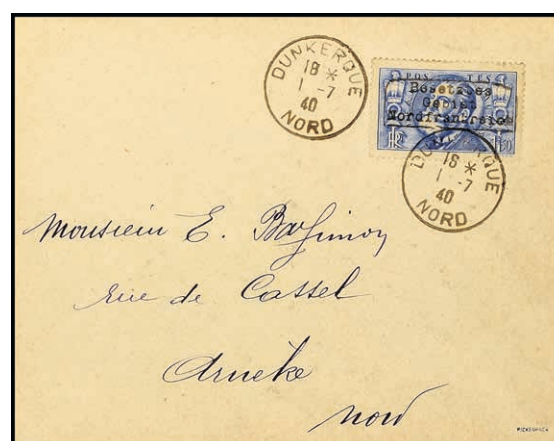 DUNKERQUE
18 *
1 -7
40
NORD
POSTES
Besetztes
Gebiet
Nordfrankreich
RF
1F50
DUNKERQUE
18 *
1 -7
40
NORD
Monsieur E.
rue de Cassel
Arnèke
Nord